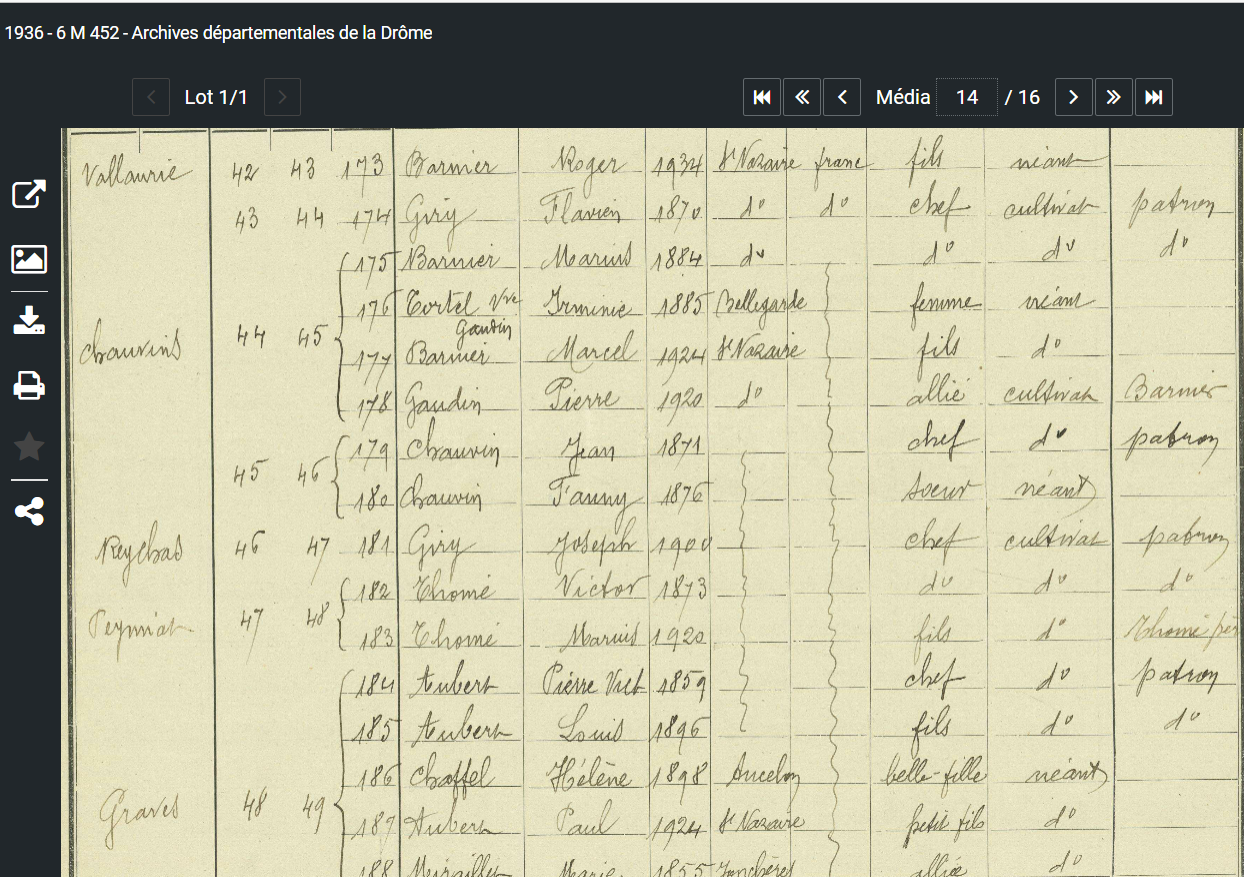 1936 - 6 M 452 - Archives départementales de la Drôme
Lot 1/1
Média 14 / 16
Vallaurie 42 43 173 Barnier Roger 1934 St Nazaire franc fils néant
43 44 174 Giry Flavien 1870 do do chef cultivat patron
175 Barnier Marius 1884 do do do do
176 Tortel Vve Gaudin Irminie 1885 Bellegarde femme néant
Chauvins 44 45
177 Barnier Marcel 1924 St Nazaire fils do
178 Gaudin Pierre 1920 do allié cultivat Barnier
179 Chauvin Jean 1871 chef do patron
45 46
180 Chauvin Fanny 1876 soeur néant
Reychas 46 47 181 Giry Joseph 1900 chef cultivat patron
182 Thomé Victor 1873 do do do
47 48
183 Thomé Marius 1920 fils do Thomé père
184 Aubert Pierre Vict 1859 chef do patron
185 Aubert Louis 1896 fils do do
186 Chaffel Hélène 1898 Aucelon belle-fille néant
Graves 48 49
187 Aubert Paul 1924 St Nazaire petit fils do
188 Marie 1855 Jonchères alliée do